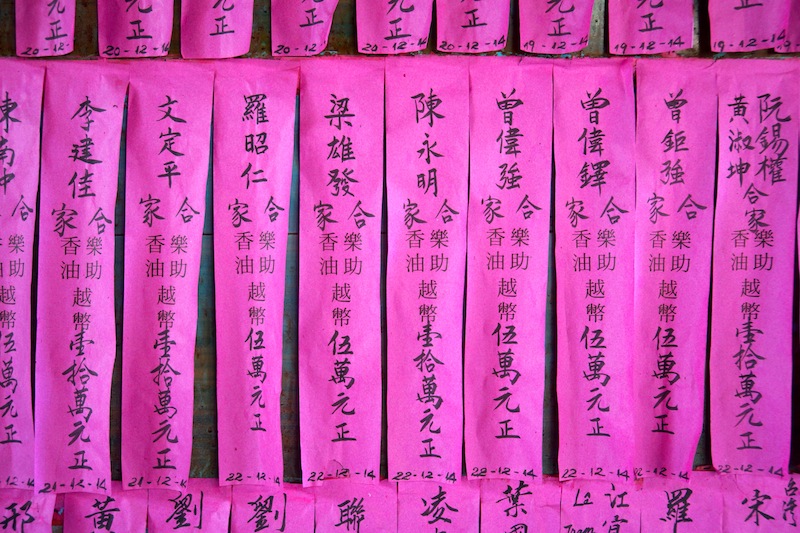 正
19-12-14
元正
19-12-14
元正
19-12-14
元正
20-12-14
元正
20-12-14
元正
20-12-
元正
20-12-14
元正
20-12-14
正
20-12-
阮錫權
黃淑坤
合家
樂助
香油
越幣壹拾萬元正
22-12-14
曾鉅強
合家
樂助
香油
越幣伍萬元正
22-12-14
曾偉鐸
合家
樂助
香油
越幣伍萬元正
22-12-14
曾偉強
合家
樂助
香油
越幣伍萬元正
22-12-14
陳永明
合家
樂助
香油
越幣壹拾萬元正
22-12-14
梁雄發
合家
樂助
香油
越幣伍萬元正
22-12-14
羅昭仁
合家
樂助
香油
越幣伍萬元正
22-12-14
文定平
合家
樂助
香油
越幣壹拾萬元正
21-12-14
李建佳
合家
樂助
香油
越幣壹拾萬元正
21-12-14
陳南中
合
樂助
越幣
伍萬元正
台灣
宋
羅
江宜
葉國
凌
聯
劉
劉
黃
邢